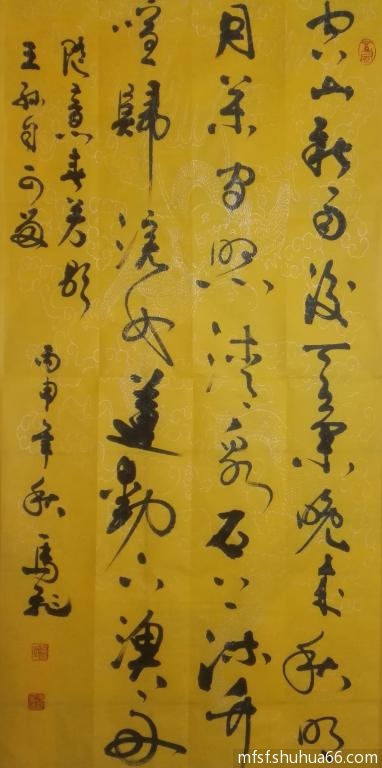 空山新雨後天氣晚来秋明
月松间照清泉石上流竹
喧歸浣女蓮動下漁舟
随意春芳歇
王孫自可留
丙申年秋馬飛
mfsfshuhua66.com